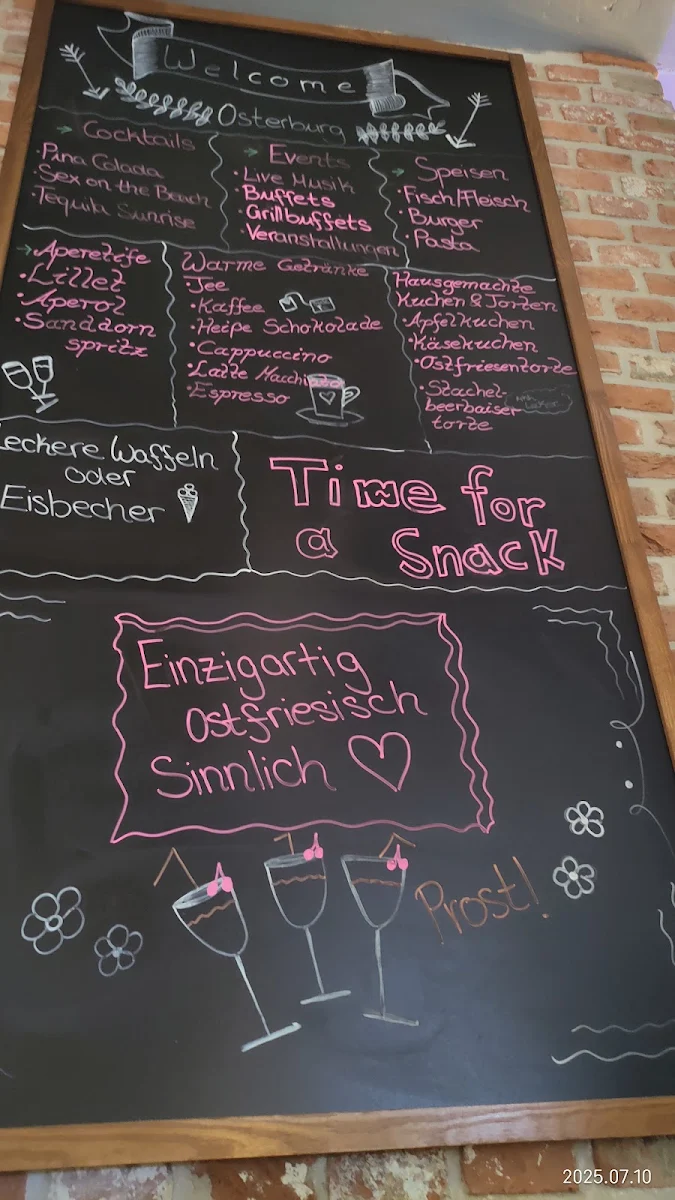 Welcome
Osterburg
Cocktails
• Pina Colada
• Sex on the Beach
Tequila Sunrise
Events
• Live Musik
• Buffets
• Grillbuffets
• Veranstaltungen
Speisen
• Fisch/Fleisch
• Burger
• Pasta
Aperetife
• Lillet
• Aperol
• Sanddorn
spritz
Warme Getränke
• Tee
• Kaffee
• Heiße Schokolade
• Cappuccino
• Latte Macchiato
• Espresso
Hausgemachte
Kuchen & Torten
• Apfelkuchen
• Käsekuchen
• Ostfriesentorte
• Stachel-
beerbaiser
torte
Leckere Waffeln
oder
Eisbecher
Time for
a Snack
Einzigartig
Ostfriesisch
Sinnlich
Prost!
2025.07.10